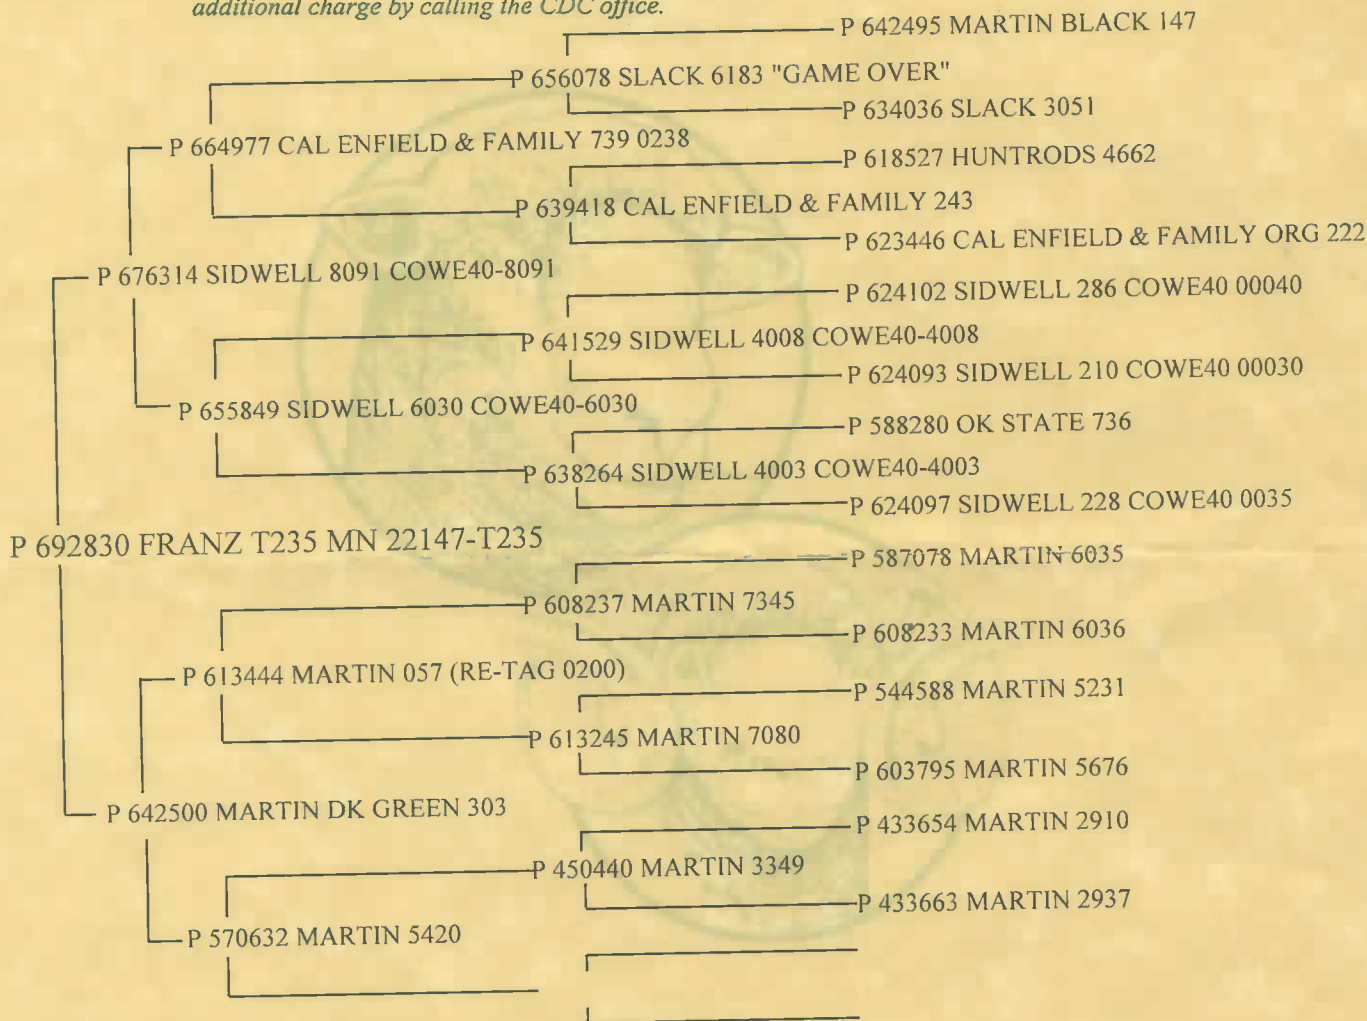 additional charge by calling the CDC office.
P 642495 MARTIN BLACK 147
P 656078 SLACK 6183 "GAME OVER"
P 634036 SLACK 3051
P 664977 CAL ENFIELD & FAMILY 739 0238
P 618527 HUNTRODS 4662
P 639418 CAL ENFIELD & FAMILY 243
P 623446 CAL ENFIELD & FAMILY ORG 222
P 676314 SIDWELL 8091 COWE40-8091
P 624102 SIDWELL 286 COWE40 00040
P 641529 SIDWELL 4008 COWE40-4008
P 624093 SIDWELL 210 COWE40 00030
P 655849 SIDWELL 6030 COWE40-6030
P 588280 OK STATE 736
P 638264 SIDWELL 4003 COWE40-4003
P 624097 SIDWELL 228 COWE40 0035
P 692830 FRANZ T235 MN 22147-T235
P 587078 MARTIN 6035
P 608237 MARTIN 7345
P 608233 MARTIN 6036
P 613444 MARTIN 057 (RE-TAG 0200)
P 544588 MARTIN 5231
P 613245 MARTIN 7080
P 603795 MARTIN 5676
P 642500 MARTIN DK GREEN 303
P 433654 MARTIN 2910
P 450440 MARTIN 3349
P 433663 MARTIN 2937
P 570632 MARTIN 5420